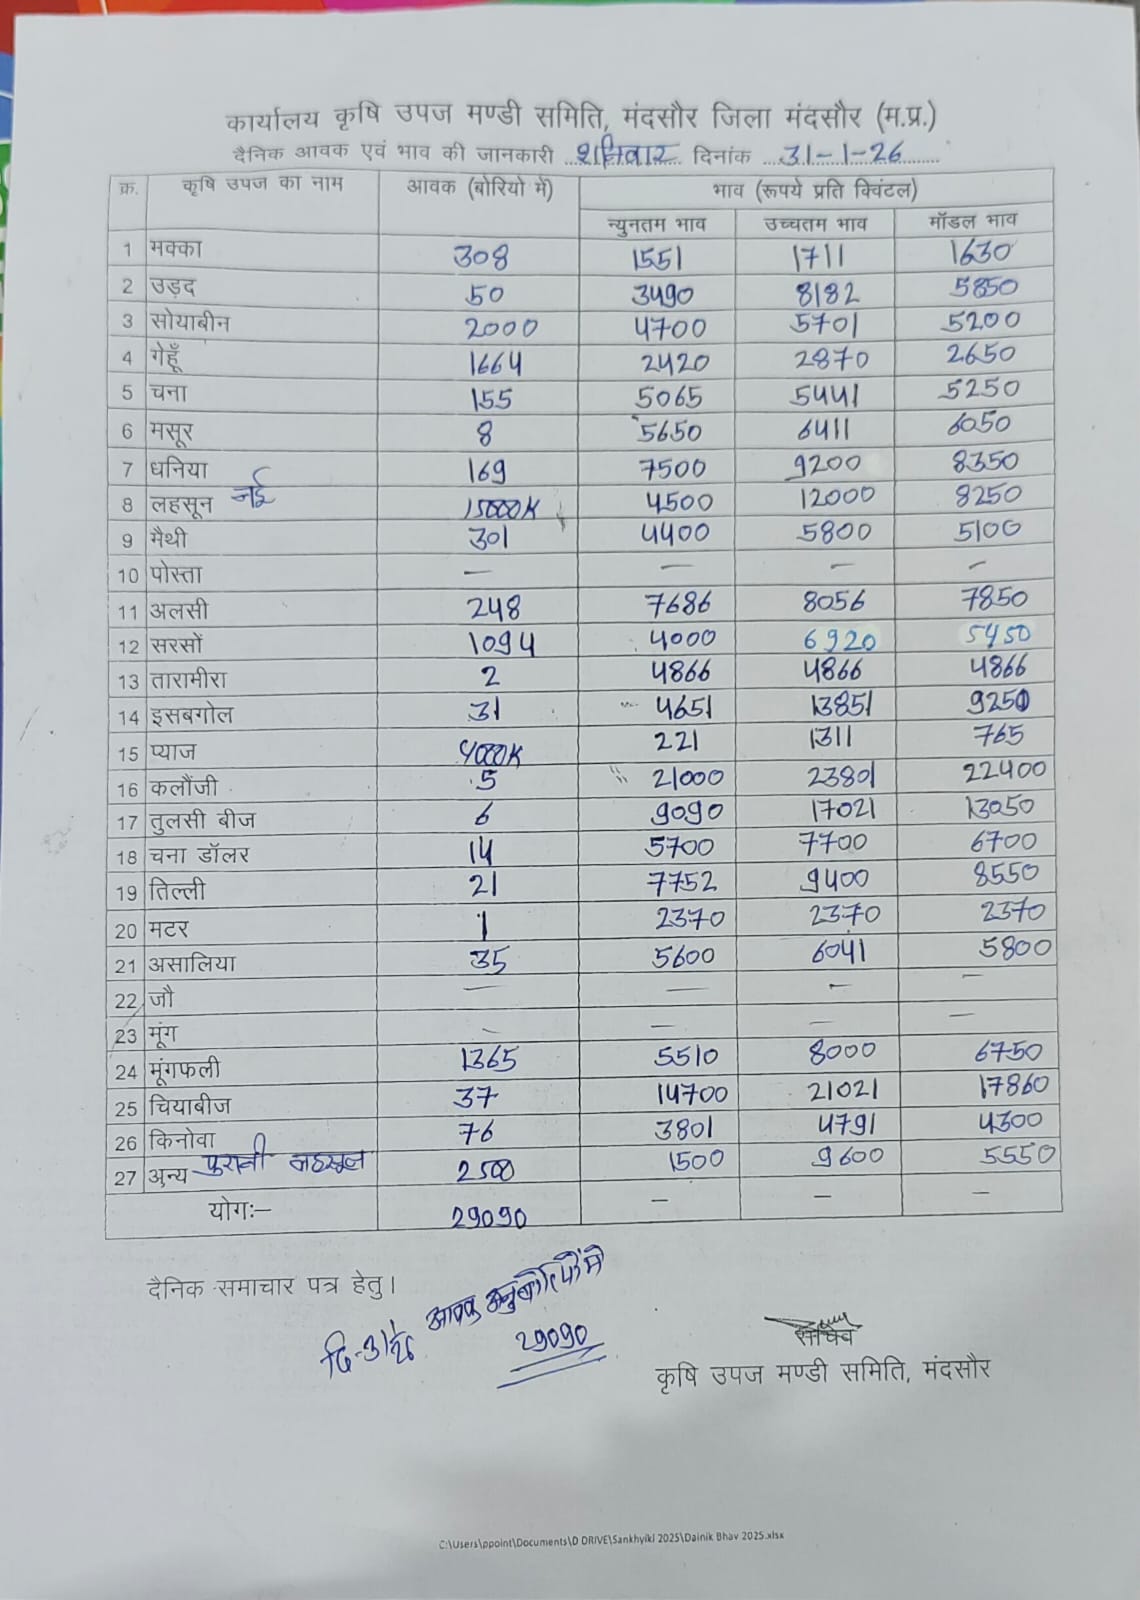 कार्यालय कृषि उपज मण्डी समिति, मंदसौर जिला मंदसौर (म.प्र.)
दैनिक आवक एवं भाव की जानकारी शनिवार दिनांक 31-1-26
क्र. कृषि उपज का नाम आवक (बोरियो में) भाव (रूपये प्रति क्विंटल)
न्युनतम भाव उच्चतम भाव मॉडल भाव
1 मक्का 308 1551 1711 1630
2 उड़द 50 3490 8182 5850
3 सोयाबीन 2000 4700 5701 5200
4 गेहूँ 1664 2420 2870 2650
5 चना 155 5065 5441 5250
6 मसूर 8 5650 6411 6050
7 धनिया 169 7500 9200 8350
8 लहसून नई 15000K 4500 12000 8250
9 मैथी 301 4400 5800 5100
10 पोस्ता — — — —
11 अलसी 248 7686 8056 7850
12 सरसों 1094 4000 6920 5450
13 तारामीरा 2 4866 4866 4866
14 इसबगोल 31 4651 13851 9250
15 प्याज 4000K 221 1311 765
16 कलौंजी 5 21000 23801 22400
17 तुलसी बीज 6 9090 17021 13050
18 चना डॉलर 14 5700 7700 6700
19 तिल्ली 21 7752 9400 8550
20 मटर 1 2370 2370 2370
21 असालिया 35 5600 6041 5800
22 जौ — — — —
23 मूंग — — — —
24 मूंगफली 1365 5510 8000 6750
25 चियाबीज 37 14700 21021 17860
26 किनोवा 76 3801 4791 4300
27 अन्य पुरानी लहसून 2500 1500 9600 5550
योगः— 29090 — — —
दैनिक समाचार पत्र हेतु।
आवक
29090
सचिव
कृषि उपज मण्डी समिति, मंदसौर
C:\Users\ppoint\Documents\D DRIVE\Sankhyiki 2025\Dainik Bhav 2025.xlsx